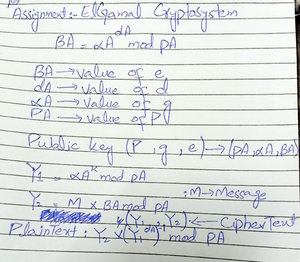 Assignment:- ElGamal Cryptosystem
BA = αA^dA mod pA
BA → value of e
dA → value of d
αA → value of g
PA → value of P
Public key (P, g, e) → (pA, αA, BA)
Y1 = αA^k mod pA
:M→Message
Y2 = M × BA mod pA
(Y1, Y2) ← CipherText
PlainText: Y2 × (Y1^dA)^-1 mod PA